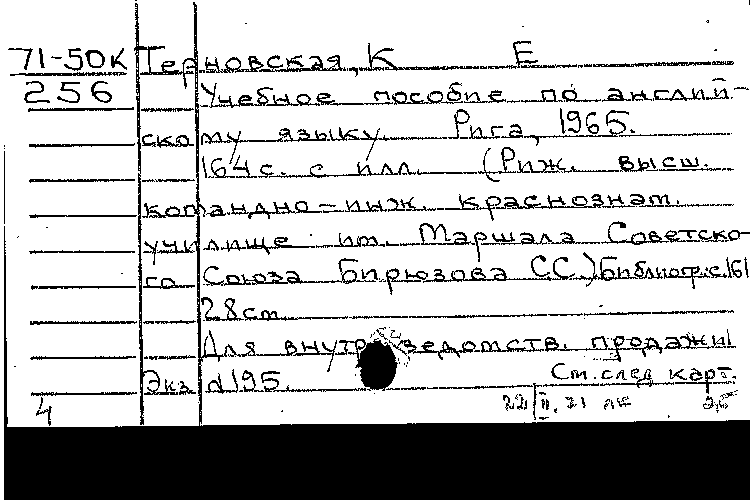 71-50К Терновская, К Е
256 Учебное пособие по англий-
скому языку. Рига, 1965.
164 с. с илл. (Риж. высш.
командно-инж. краснознам.
училище им. Маршала Советско-
го Союза Бирюзова С.С.) Библиогр.: с. 161
28 см.
Для внутриведомств. продажи
Экз N195.
См. след карт.
4 22/II.71